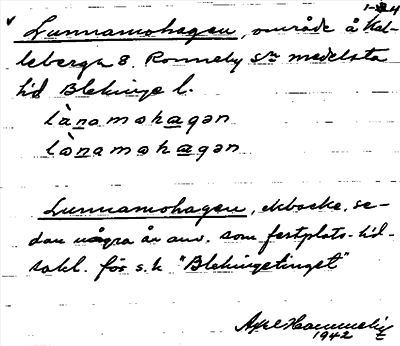 1-24
v Lunnamohagen, område å Kal-
leberga 8. Ronneby sn medelsta
hd Blekinge l.
lànamohagən
lònamohagən
Lunnamohagen, ekbacke, se-
dan några år anv. som festplats - tid-
sakl. för s.k "Blekingetinget"
Axel
1942